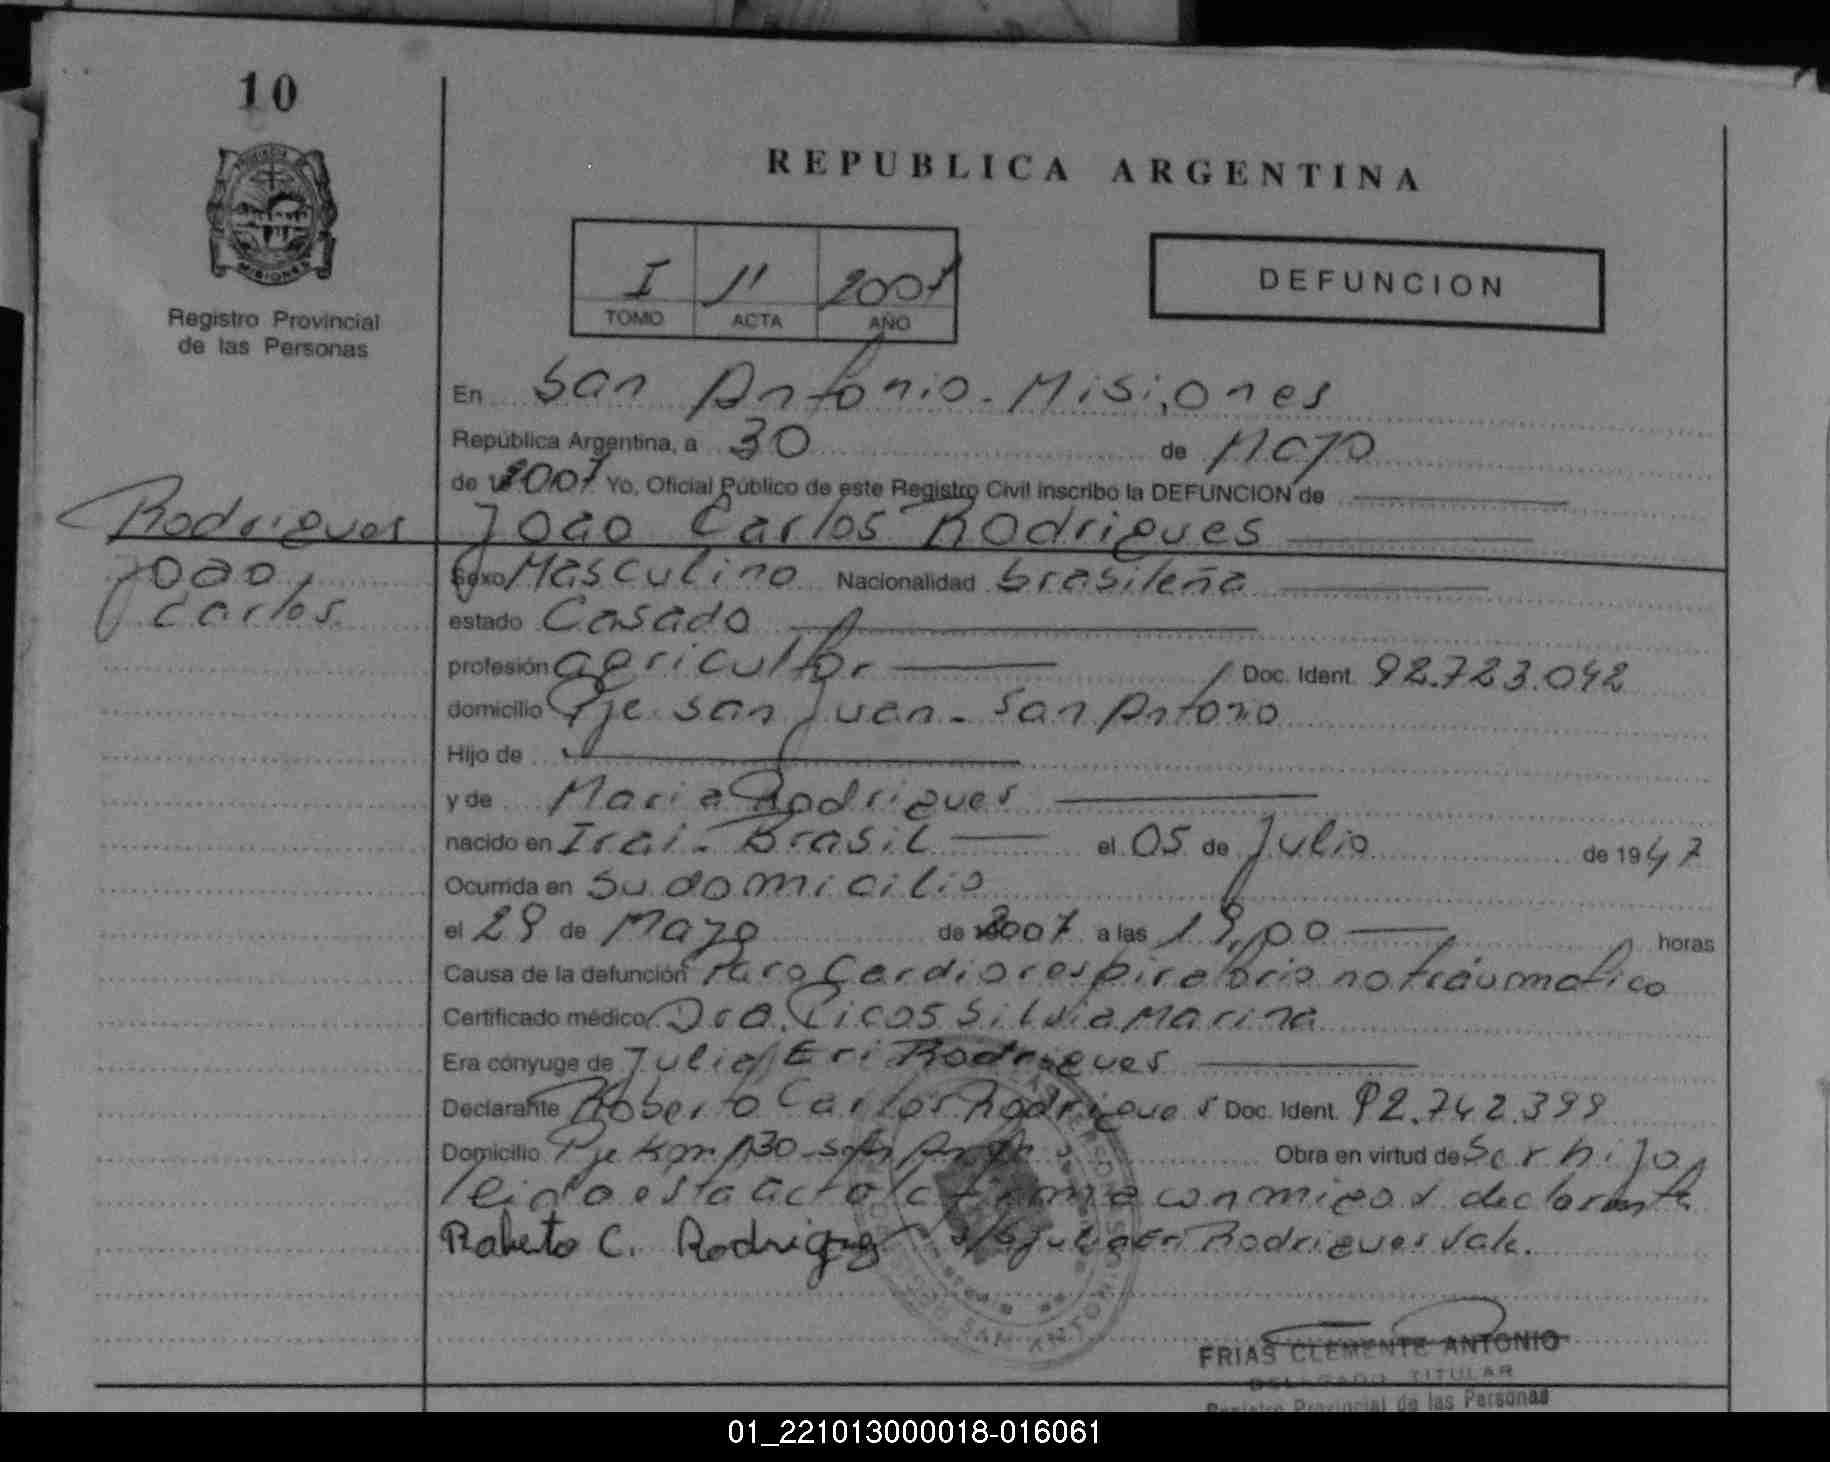 10
REPUBLICA ARGENTINA
PROVINCIA DE
MISIONES
I 11 2007
TOMO ACTA AÑO
DEFUNCION
Registro Provincial
de las Personas
En San Antonio - Misiones
República Argentina, a 30 de Mayo
de 2007 Yo, Oficial Público de este Registro Civil inscribo la DEFUNCION de
Rodrigues
Joao
Carlos
Joao Carlos Rodrigues
Sexo Masculino Nacionalidad brasileña
estado Casado
profesión agricultor Doc. Ident. 92.723.042
domicilio Pje San Juan - San Antonio
Hijo de
y de Maria Rodrigues
nacido en Irai - Brasil el 05 de Julio de 1947
Ocurrida en Su domicilio
el 29 de Mayo de 2007 a las 19,00 horas
Causa de la defunción Paro Cardiorespiratorio no traumatico
Certificado médico Dra. Picos Silvia Marina
Era cónyuge de Julia Eri Rodrigues
Declarante Roberto Carlos Rodrigues Doc. Ident. 92.742.399
Domicilio Pje Km 130 - San Obra en virtud de Ser hijo
leida esta acta firma conmigo declarante
Roberto C. Rodriguez Rodrigues Vale.
SAN ANTONIO
FRIAS CLEMENTE ANTONIO
DELEGADO TITULAR
Registro Provincial de las Personas
01_221013000018-016061